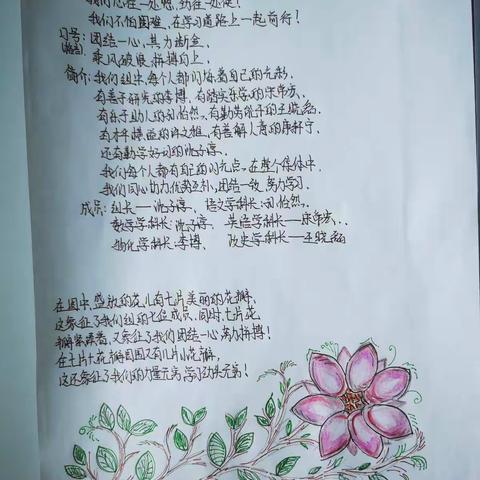 我们不怕困难，在学习道路上一起前行！
口号：团结一心，其力断金，
乘风破浪，拼搏向上。
简介：我们组中，每个人都闪烁着自己的光彩，
有善于研究的李博，有踏实乐学的
有乐于助人的刘怡然，有勤劳
有才华横溢的 有善解人意的
还有勤学好问的沈子淳。
我们每个人都有自己的闪光点，在整个集体中，
我们同心协力，优势互补，团结一致，努力学习。
成员：组长——沈子淳， 语文学科长：刘怡然，
数学学科长：沈子淳， 英语学科长——
物化学科长：李博， 政史学科长——王晓
在图中，盛放的花儿有七片美丽的花瓣，
这象征了我们组的七位成员，同时，七片花
瓣紧紧 又象征了我们团结一心，努力拼搏！
在七片大花瓣周围又有几片小花瓣，
这还象征了我们的力量无穷，学习劲头无穷！